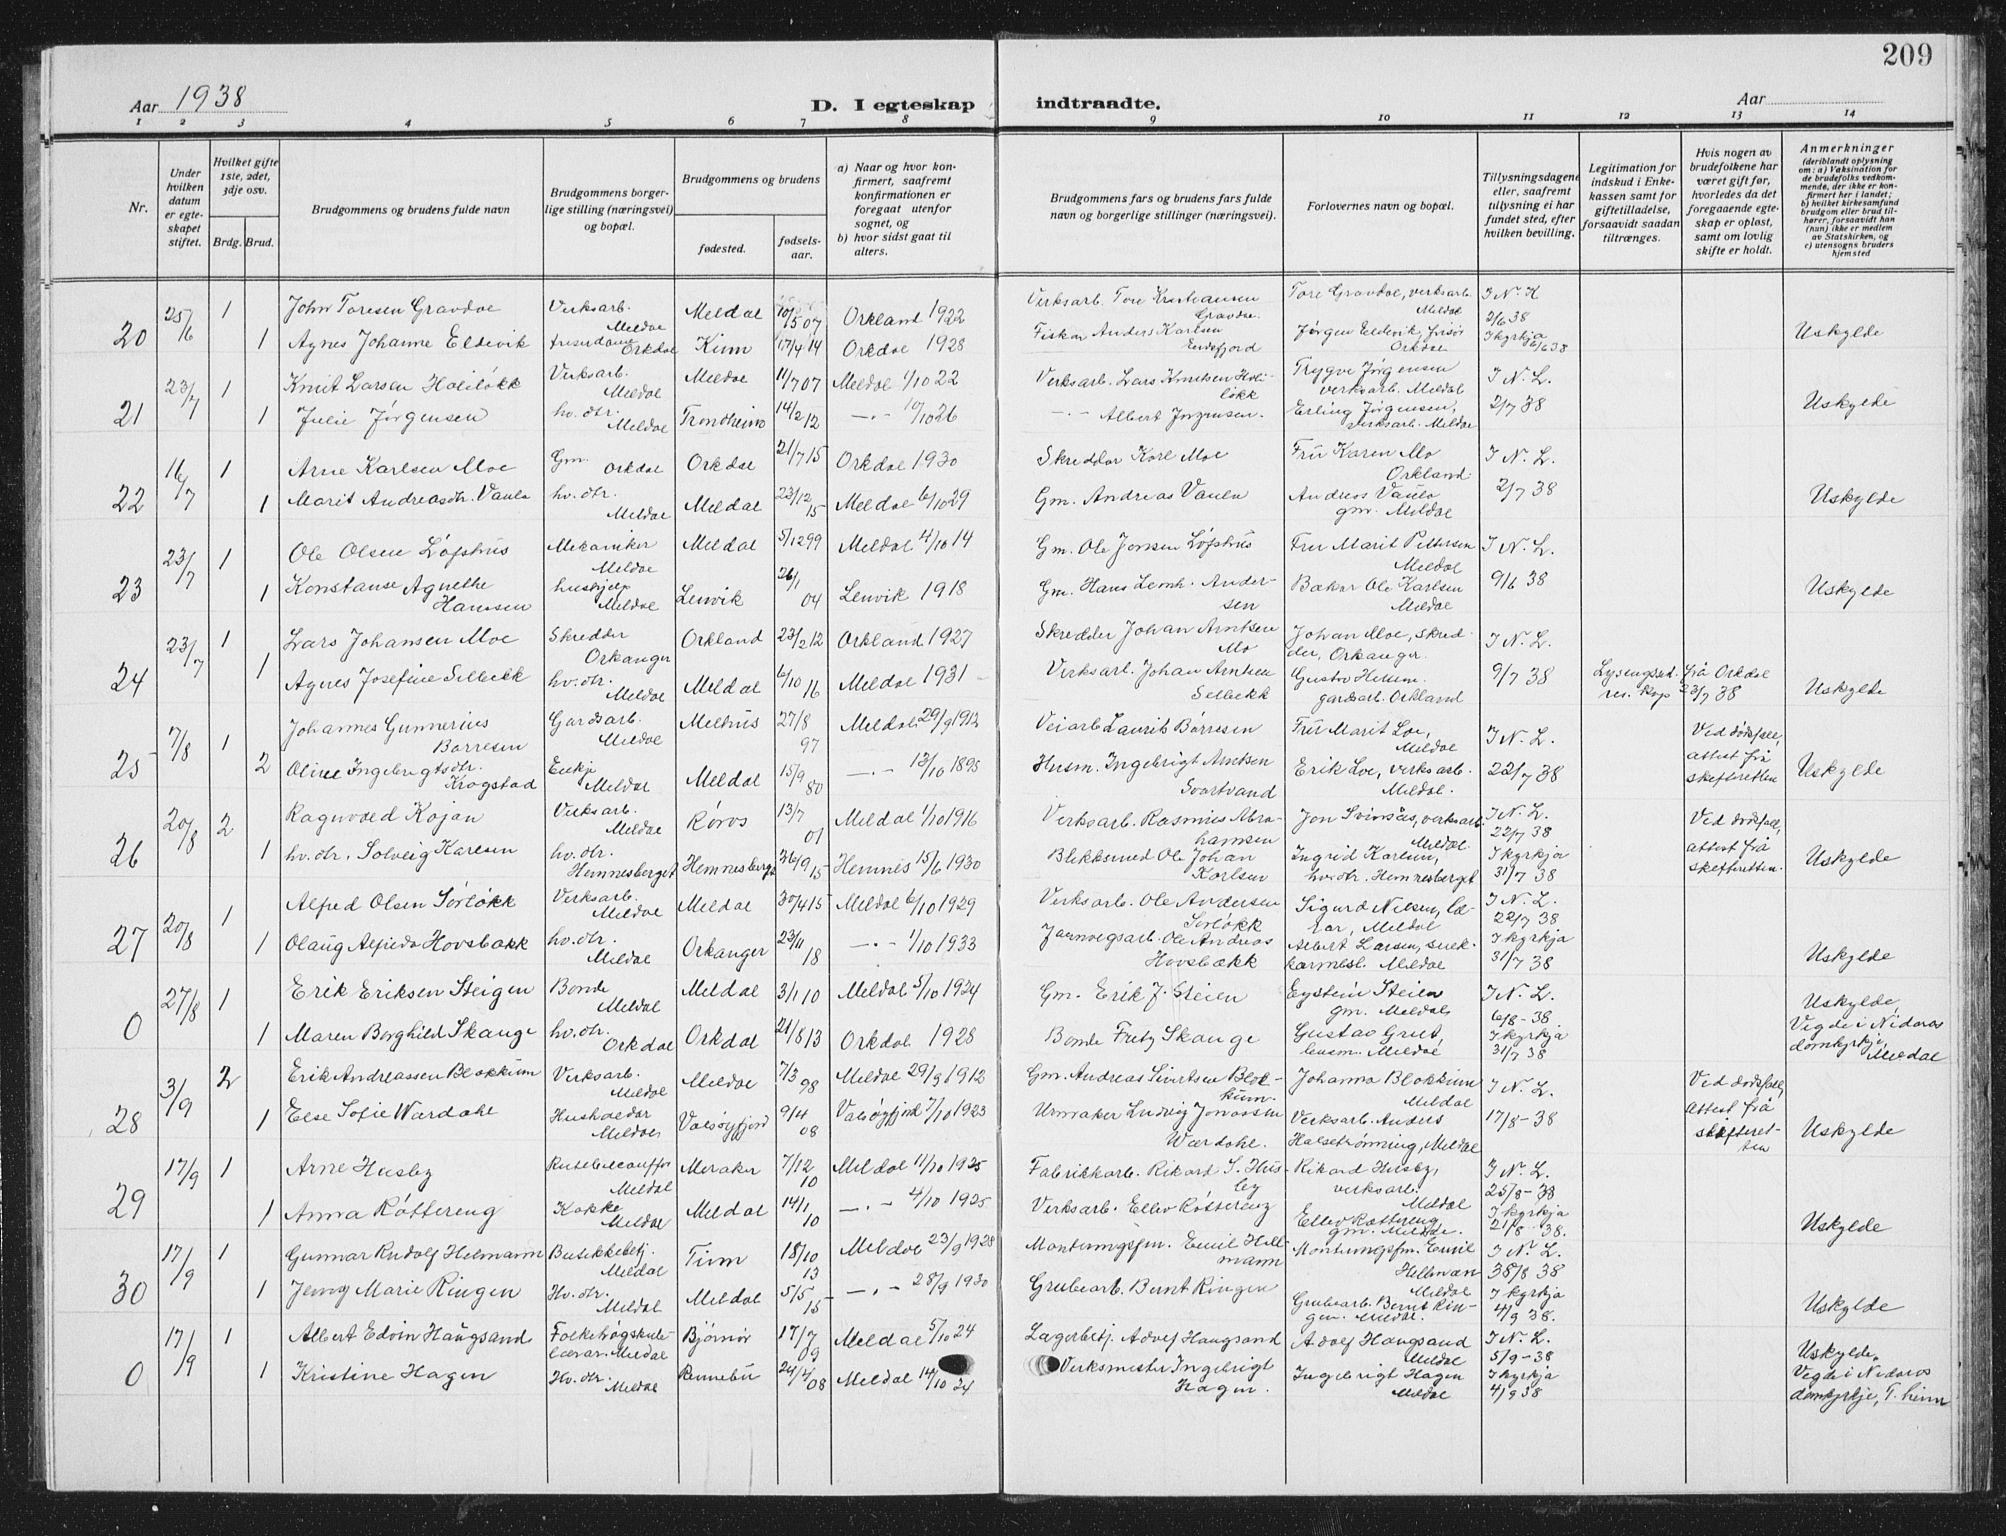 209
Aar 1938
D. I egteskap indtraadte.
Aar
1 2 3 4 5 6 7 8 9 10 11 12 13 14
Nr.
Under hvilken datum er egteskapet stiftet.
Hvilket gifte 1ste, 2det, 3dje osv.
Brdg. Brud.
Brudgommens og brudens fulde navn
Brudgommens borgerlige stilling (næringsvei) og bopæl.
Brudgommens og brudens
fødested.
fødselsaar.
a) Naar og hvor konfirmert, saafremt konfirmationen er foregaat utenfor sognet, og
b) hvor sidst gaat til alters.
Brudgommens fars og brudens fars fulde navn og borgerlige stillinger (næringsvei).
Forlovernes navn og bopæl.
Tillysningsdagene eller, saafremt tillysning ei har fundet sted, efter hvilken bevilling.
Legitimation for indskud i Enkekassen samt for giftetilladelse, forsaavidt saadan tiltrænges.
Hvis nogen av brudefolkene har været gift før, hvorledes da det foregaaende egteskap er opløst, samt om lovlig skifte er holdt.
Anmerkninger
(deriblandt oplysning om: a) Vaksination for de brudefolks vedkommende, der ikke er konfirmert her i landet; b) hvilket kirkesamfund brudgom eller brud tilhører, forsaavidt han (hun) ikke er medlem av Statskirken, og c) utensogns bruders hjemsted
20 25/6 1 John Toresen Gravdal Verksarb. Meldal Meldal 10/5 07 Orkland 1922 Verksarb. Tore Kristiansen Gravdal Tore Gravdal, verksarb. Meldal I N. K 2/6 38
1 Agnes Johanne Eldevik Orkdal Kinn 17/4 14 Orkdal 1928 Fiskar Anders Karlsen Jørgen Eldevik, frisør Orkdal I kyrkja 6/6 38 Uskylde
21 23/7 1 Knut Larsen Holiløkk Verksarb. Meldal Meldal 11/7 07 Meldal 1/10 22 Verksarb. Lars Knutsen Holiløkk Trygve Jørgensen verksarb. Meldal I N. L.
1 Julie Jørgensen hv. dtr. Meldal Trondheim 14/2 12 —"— 10/10 26 —"— Albert Jørgensen. Erling Jørgensen, verksarb. Meldal 2/7 38 Uskylde
22 16/7 1 Arne Karlsen Moe Gm. Orkdal Orkdal 21/7 15 Orkdal 1930 Skreddar Karl Moe Fru Karen Mo Orkland I N. L.
1 Marit Andreasdtr. Vaula hv. dtr. Meldal Meldal 23/12 15 Meldal 6/10 29 Gm. Andreas Vaula Andreas Vaula gm. Meldal 2/7 38 Uskylde
23 23/7 1 Ole Olsen Løfshus Mekaniker Meldal Meldal 5/12 99 Meldal 4/10 14 Gm. Ole Jensen Løfshus Fru Marit Pettersen Meldal I N. L.
1 Konstanse Agnethe Hanssen hushjelp Meldal Lenvik 26/1 04 Lenvik 1918 Gm. Hans Andersen Bakar Ole Karlsen Meldal 9/6 38 Uskylde
24 23/7 1 Lars Johansen Moe Skredder Orkanger Orkland 23/2 12 Orkland 1927 Skredder Johan Arntsen Mo Johan Moe, skredder, Orkanger. I N. L.
1 Agnes Josefine Selbekk hv. dtr. Meldal Meldal 6/10 16 Meldal 1931 Verksarb. Johan Arntsen Selbekk Gustav gardsarb. Orkland 9/7 38 frå Orkdal 23/7 38 Uskylde
25 7/8 1 Johannes Gunnerius Børresen Gardsarb. Meldal Melhus 27/8 97 Meldal 29/9 1912 Veiarb Laurits Børresen Fru Marit Loe, Meldal I N. L. Ved dødsfall,
2 Oline Ingebrigtsdtr. Krogstad Enkje Meldal Meldal 15/9 80 —"— 13/10 1895 Husm. Ingebrigt Arntsen Svartvand Erik Loe, verksarb. Meldal. 22/7 38 attest frå skifteretten Uskylde
26 20/8 2 Ragnvald Kojan Verksarb. Meldal Røros 13/7 01 Meldal 1/10 1916 Verksarb. Rasmus Abrahamsen Jon Svinsås, verksarb. Meldal. I N. L. 22/7 38 Ved dødsfall,
1 hv. dtr. Solveig Karlsen hv. dtr. Hemnesberget Hemnesberget 26/9 15 Hemnes 15/6 1930 Blikksmed Ole Johan Karlsen Ingrid Karlsen, hv. dtr. Hemnesberget I kyrkja 31/7 38 attest frå skifteretten. Uskylde
27 20/8 1 Alfred Olsen Sørløkk Verksarb. Meldal Meldal 30/4 15 Meldal 6/10 1929 Verksarb. Ole Andersen Sørløkk Sigurd Nilsen, lærar, Meldal I N. L. 22/7 38
1 Olaug Alfreda Hovsbakk hv. dtr. Meldal Orkanger 23/11 18 —"— 1/10 1933 Jarnvegsarb. Ole Andreas Hovsbækk Albert Larsen, snekkarmest. Meldal I kyrkja 31/7 38 Uskylde
0 27/8 1 Erik Eriksen Steigen Bonde Meldal Meldal 3/1 10 Meldal 5/10 1924 Gm. Erik J. Steien Eystein Steien gm. Meldal I N. L. 6/8-38 Uskylde,
1 Maren Borghild Skauge hv. dtr. Orkdal Orkdal 21/8 13 Orkdal 1928 Bonde Fritz Skauge Gustav Grut, Meldal I kyrkja 31/7 38 Vigde i Nidaros domkyrkje, Meldal
28 3/9 2 Erik Andreassen Blokkum Verksarb. Meldal Meldal 7/3 98 Meldal 29/9 1912 Gm. Andreas Sivertsen Blokkum Johanna Blokkum Meldal I N. L. Ved dødsfall,
1 Else Sofie Wærdahl Hushaldar Meldal Valsøyfjord 9/4 08 Valsøyfjord 7/10 1923 Urmaker Ludvig Jonassen Wærdahl. Verksarb. Anders Halsetrønning, Meldal 17/8-38 attest frå skifteretten Uskylde
29 17/9 1 Arne Husby Meldal Meraker 7/12 10 Meldal 11/10 1925 Fabrikkarb. Rikard S. Husby Rikard Husby, verksarb. Meldal I N. L. 25/8-38
1 Anna Røttereng Kokke Meldal Meldal 14/1 10 —"— 4/10 1925 Verksarb. Ellev Røttereng Ellev Røttereng gm. Meldal. I kyrkja 21/8-38. Uskylde
30 17/9 1 Gunnar Rudolf Helmann Butikkbetj. Meldal Tinn 18/10 13 Meldal 23/9 1928 Monteringsfm. Emil Hellmann Monteringsfm. Emil Hellman Meldal I N. L. 38/8 38
1 Jenny Marie Ringen Hv. dtr. Meldal Meldal 5/5 15 —"— 28/9 1930 Grubearb. Bernt Ringen Grubearb. Bernt Ringen. Meldal. I kyrkja 4/9 38. Uskylde
0 17/9 1 Albert Edvin Haugsand Folkehøgskulelærar. Meldal Bjørnør 17/7 09 Meldal 5/10 24 Lagerbetj. Adolf Haugsand Adolf Haugsand Meldal I N. L. 5/9-38 Uskylde.
1 Kristine Hagen Hv. dtr. Meldal Rennebu 24/4 08 Meldal 14/10 24 Verksmester Ingebrigt Hagen. Ingebrigt Hagen Meldal I kyrkja 4/9 38 Vigde i Nidaros domkyrkje, T.heim